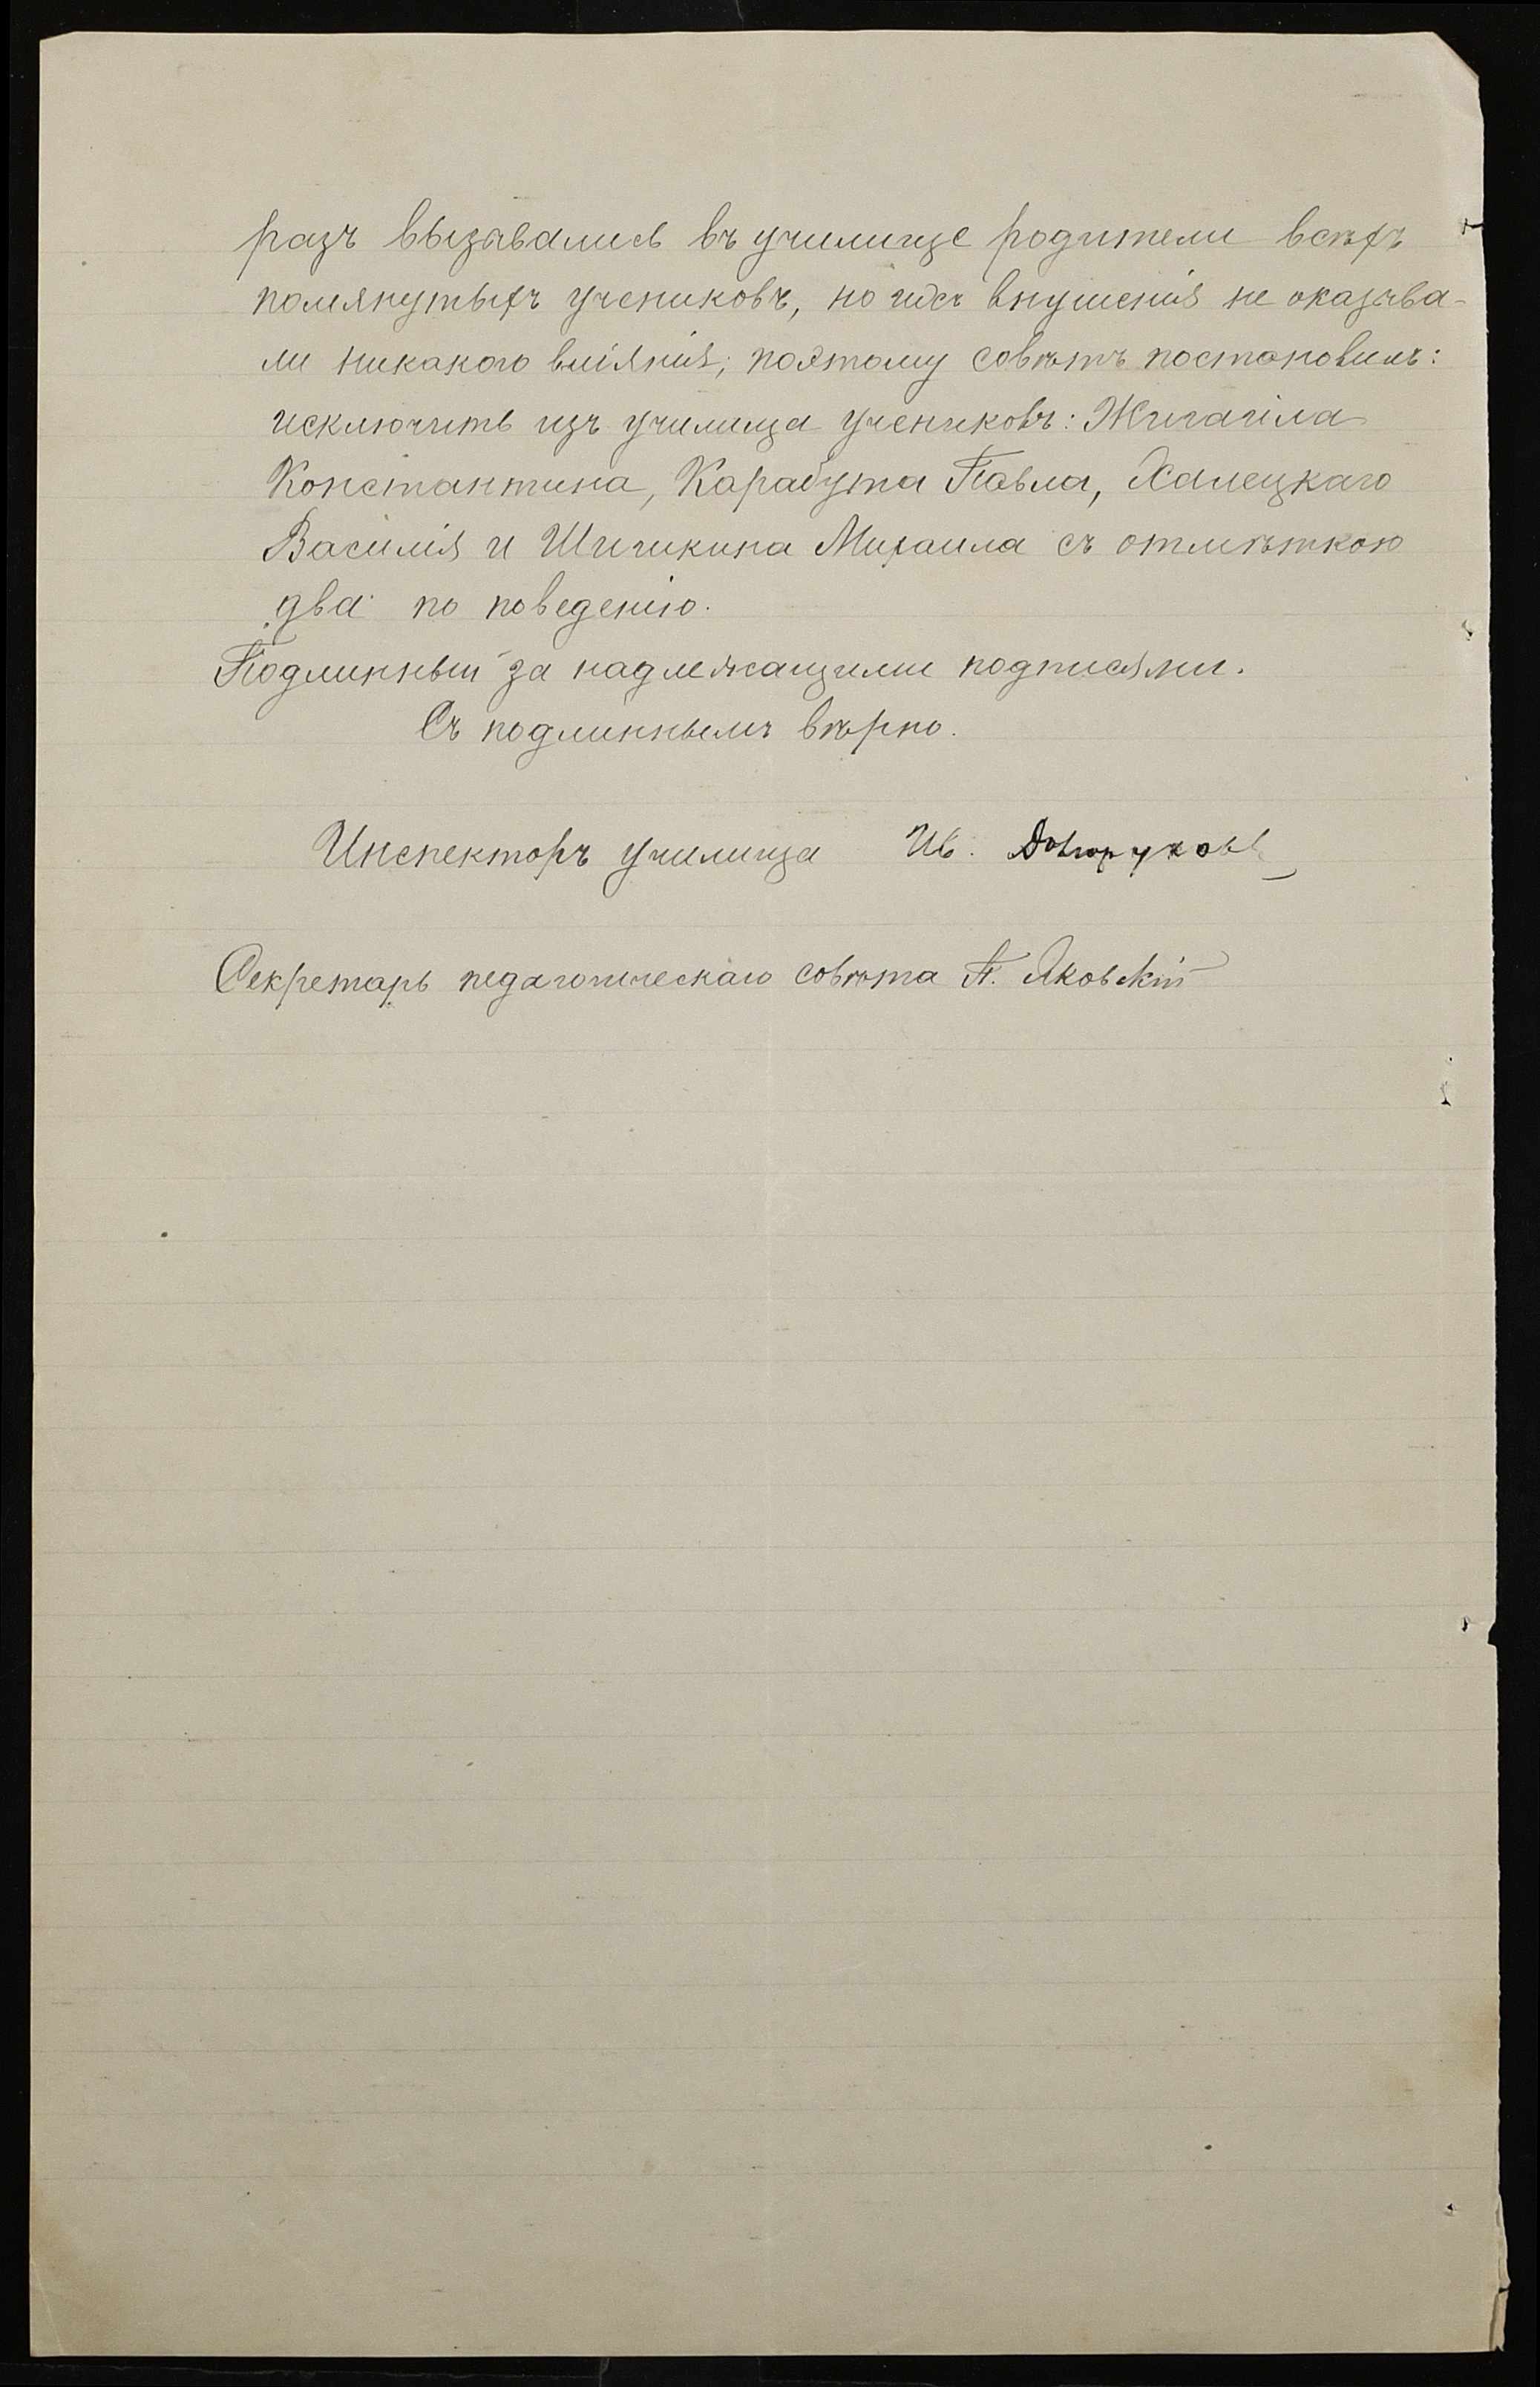 разъ вызывались въ училище родители всѣхъ
помянутыхъ учениковъ, но ихъ внушенія не оказыва-
ли никакого вліянія; поэтому совѣтъ постановилъ:
исключить изъ училища учениковъ:
Константина, Карабута Павла, Халецкаго
Василія и Шишкина Михаила съ отмѣткою
два по поведенію.
Подлинный за надлежащими подписями.
Съ подлиннымъ вѣрно.
Инспекторъ училища Ив. Долгоруковъ
Секретарь педагогическаго совѣта П. Яковскій